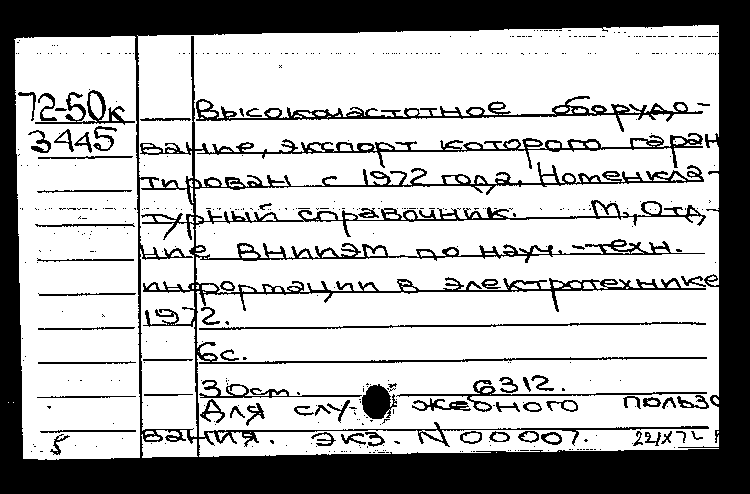 72-50к Высокочастотное оборудо-
3445 вание, экспорт которого гаран
тирован с 1972 года. Номенкла-
турный справочник. М., Отд-
ние ВНИИЭМ по науч.-техн.
информации в электротехнике
1972.
6с.
30см. 6312.
Для служебного пользо
5 вания. экз. N 00007.